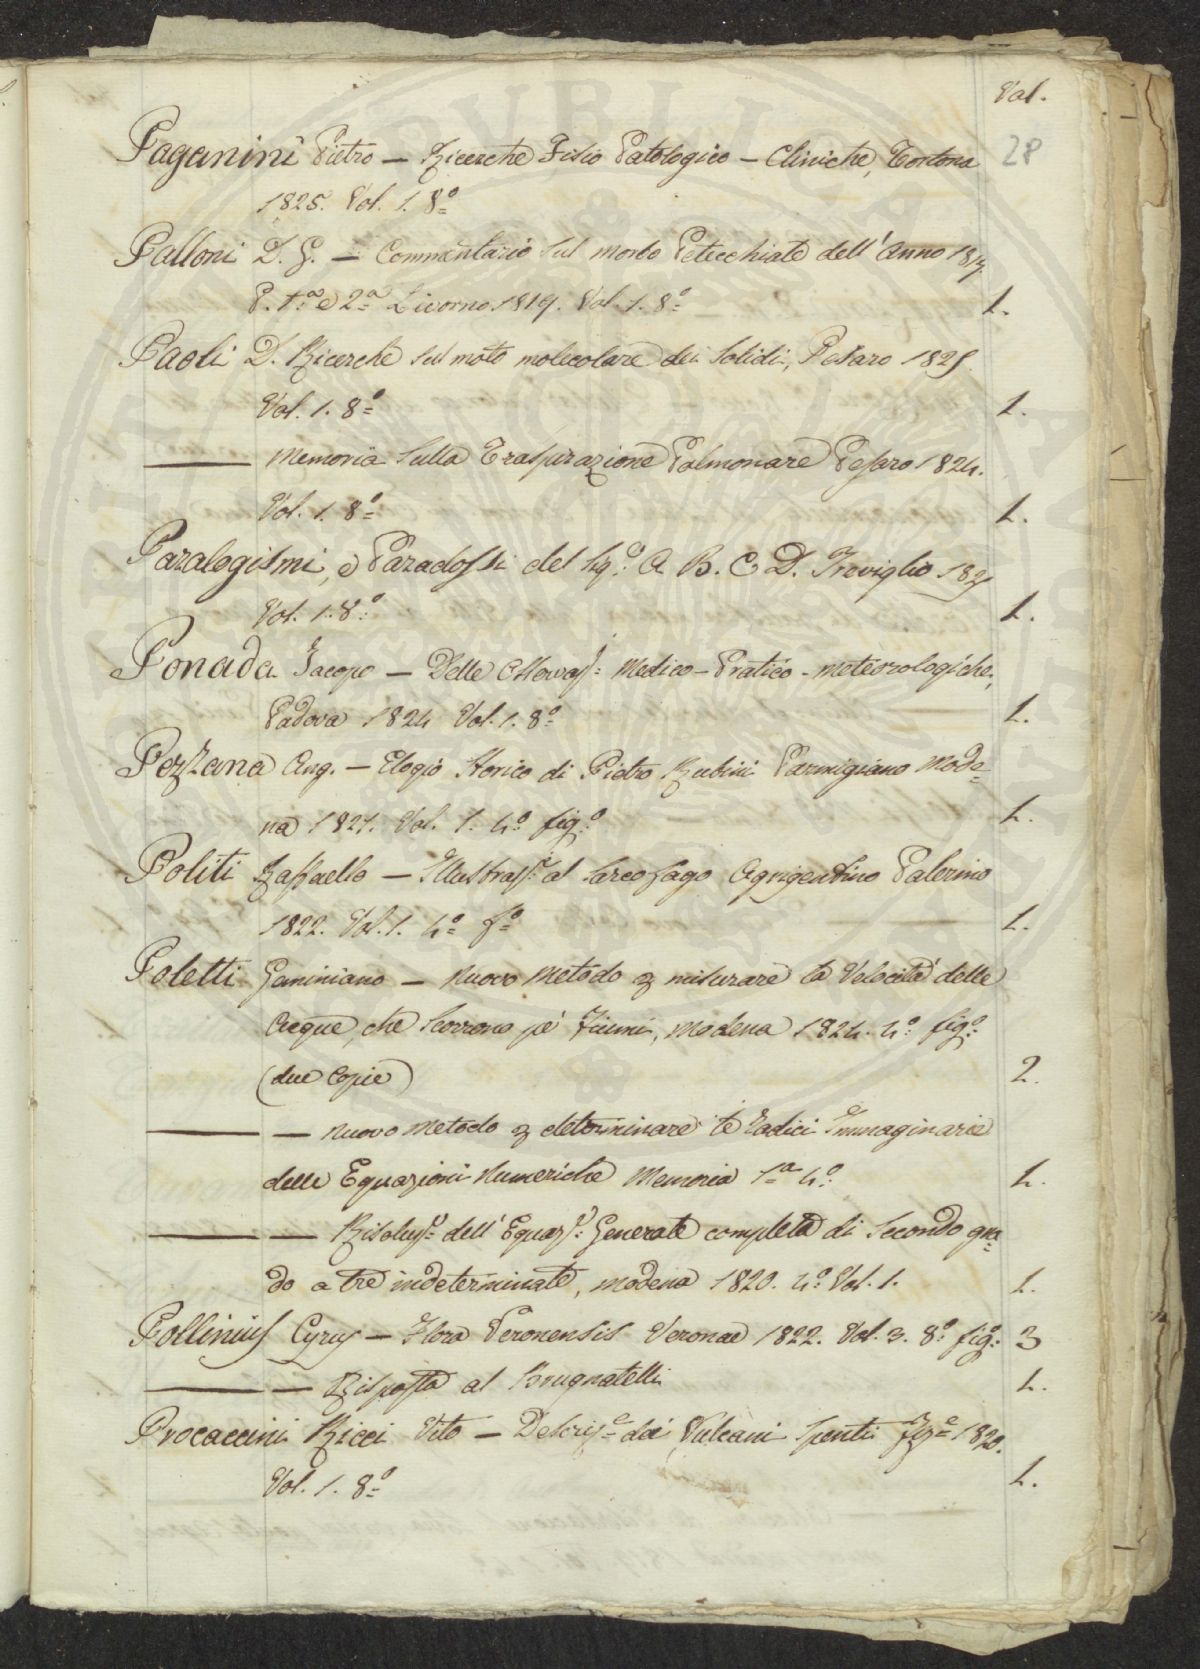 Vol.
28
Paganini Pietro — Ricerche Fisio Patologico — Cliniche, Tortona
1825. Vol. 1. 8º
Palloni D. G. — Commentario sul morbo Petecchiale dell' Anno 1817
P. 1.ª e 2ª Livorno 1819. Vol. 1. 8º 1.
Paoli D. Ricerche sul moto molecolare dei Solidi, Pesaro 1825.
Vol. 1. 8º 1.
——— Memoria Sulla Traspirazione Polmonare Pesaro 1824.
Vol. 1. 8º 1.
Paralogismi, e Paradossi del Sigº. A B. C D. Treviglio 182
Vol. 1. 8º 1.
Penada Jacopo — Delle Medico-Pratico-meteorologiche,
Padova 1824 Vol. 1. 8º 1.
Pezzana Ang. — Elogio Storico di Pietro Rubini Parmigiano Mode=
na 1821. Vol. 1. 4º figº 1.
Politi Raffaello — Illustrazᵉ al Sarcofago Agrigentino Palermo
1822. Vol. 1. 4º fº 1.
Poletti Geminiano — Nuovo Metodo p misurare la Velocità delle
Acque, che Scorrono pe' Fiumi, Modena 1824. 4º figº
(due Copie) 2.
——— — Nuovo Metodo p determinare le Radici Immaginarie
delle Equazioni Numeriche Memoria 1ª 4º 1.
——— — Risoluzᵉ dell' Equazᵉ Generale completa di Secondo gra=
do a tre indeterminate, Modena 1820. 4º Vol. 1. 1.
Pollinius Cyrus — Flora Veronensis Veronae 1822. Vol. 3. 8º figº: 3
——— — Risposta al Brugnatelli 1.
Procaccini Ricci Vito — Descrizᵉ dei Vulcani Spenti Firᵉ 1820.
Vol. 1. 8º 1.